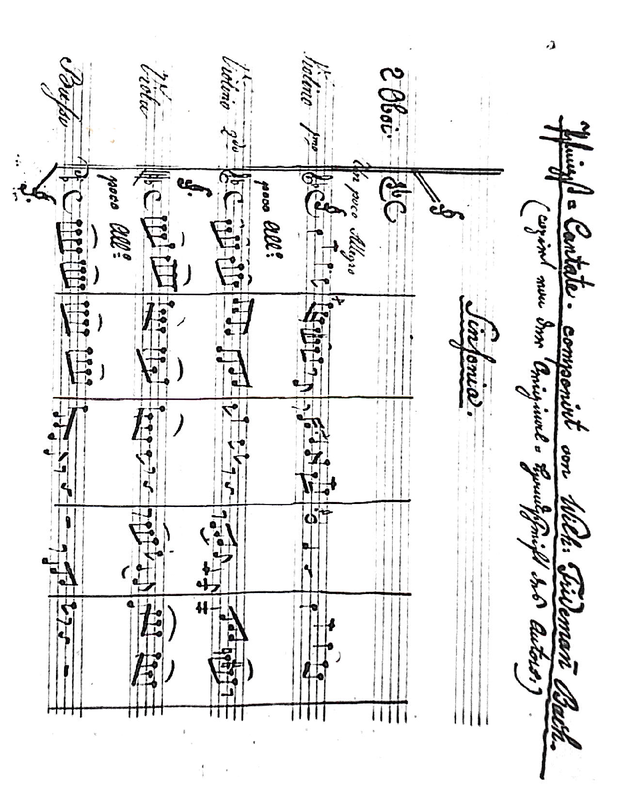 Pfingst = Cantate. componirt von Wilh: Friedeman̄ Bach.
(copirt von der Original = Handschrift des Autors.)
Sinfonia.
2 Oboi.
Un poco Allegro
Violino pmo
poco All:
Violino 2do
Viola
poco All:
Basso